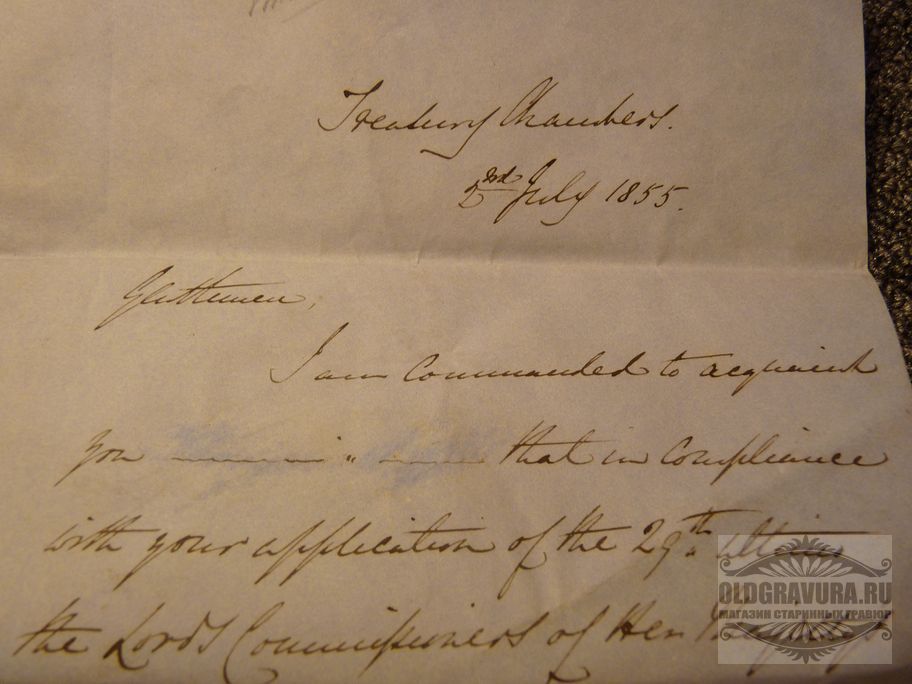 Treasury Chambers.
3rd July 1855.
Gentlemen,
I am Commanded to acquaint
you that in compliance
with your application of the 29th ultimo
the Lords Commissioners of Her Majesty's
OLDGRAVURA.RU
МАГАЗИН СТАРИННЫХ ГРАВЮР